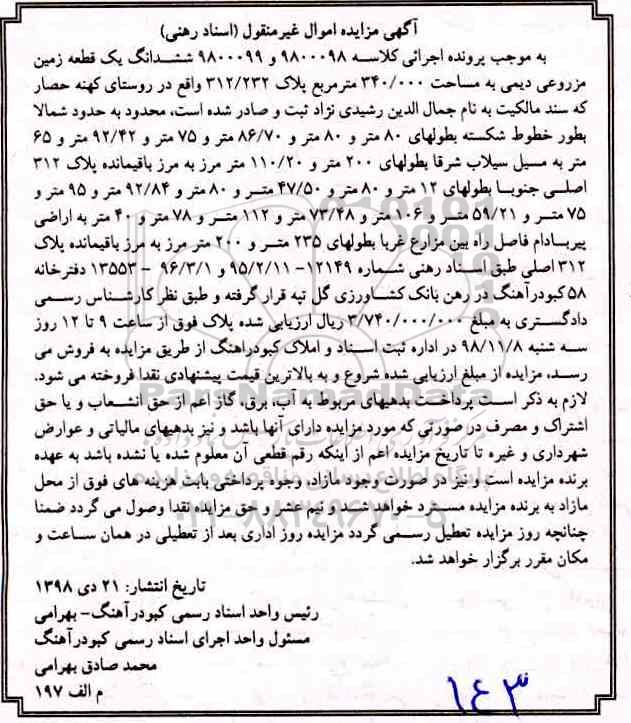 آگهی مزایده اموال غیرمنقول (اسناد رهنی)
به موجب پرونده اجرائی کلاسه ۹۸۰۰۰۹۸ و ۹۸۰۰۰۹۹ ششدانگ یک قطعه زمین
مزروعی دیمی به مساحت ۳۴۰/۰۰۰ مترمربع پلاک ۳۱۲/۲۳۲ واقع در روستای کهنه حصار
که سند مالکیت به نام جمال الدین رشیدی نژاد ثبت و صادر شده است، محدود به حدود شمالا
بطور خطوط شکسته بطولهای ۸۰ متر و ۸۰ متر و ۸۶/۷۰ متر و ۷۵ متر و ۹۲/۴۲ متر و ۶۵
متر به مسیل سیلاب شرقا بطولهای ۲۰۰ متر و ۱۱۰/۲۰ متر مرز به مرز باقیمانده پلاک ۳۱۲
اصلی جنوبا بطولهای ۱۲ متر و ۸۰ متر و ۴۷/۵۰ متر و ۸۰ متر و ۹۲/۸۴ متر و ۹۵ متر و
۷۵ متر و ۵۹/۲۱ متر و ۱۰۶ متر و ۷۳/۴۸ متر و ۱۱۲ متر و ۷۸ متر و ۴۰ متر به اراضی
پیربادام فاصل راه بین مزارع غربا بطولهای ۲۳۵ متر و ۲۰۰ متر مرز به مرز باقیمانده پلاک
۳۱۲ اصلی طبق اسناد رهنی شماره ۱۲۱۴۹- ۹۵/۲/۱۱ و ۹۶/۳/۱ - ۱۳۵۵۳ دفترخانه
۵۸ کبودرآهنگ در رهن بانک کشاورزی گل تپه قرار گرفته و طبق نظر کارشناس رسمی
دادگستری به مبلغ ۳/۷۴۰/۰۰۰/۰۰۰ ریال ارزیابی شده پلاک فوق از ساعت ۹ تا ۱۲ روز
سه شنبه ۹۸/۱۱/۸ در اداره ثبت اسناد و املاک کبودراهنگ از طریق مزایده به فروش می
رسد، مزایده از مبلغ ارزیابی شده شروع و به بالاترین قیمت پیشنهادی نقدا فروخته می شود.
لازم به ذکر است پرداخت بدهیهای مربوط به آب، برق، گاز اعم از حق انشعاب و یا حق
اشتراک و مصرف در صورتی که مورد مزایده دارای آنها باشد و نیز بدهیهای مالیاتی و عوارض
شهرداری و غیره تا تاریخ مزایده اعم از اینکه رقم قطعی آن معلوم شده یا نشده باشد به عهده
برنده مزایده است و نیز در صورت وجود مازاد، وجوه پرداختی بابت هزینه های فوق از محل
مازاد به برنده مزایده مسترد خواهد شد و نیم عشر و حق مزایده نقدا وصول می گردد ضمنا
چنانچه روز مزایده تعطیل رسمی گردد مزایده روز اداری بعد از تعطیلی در همان ساعت و
مکان مقرر برگزار خواهد شد.
تاریخ انتشار: ۲۱ دی ۱۳۹۸
رئیس واحد اسناد رسمی کبودرآهنگ- بهرامی
مسئول واحد اجرای اسناد رسمی کبودرآهنگ
محمد صادق بهرامی
م الف ۱۹۷
۱۴۳
ParsNamadData
۰۲۱-۸۸۳۴۹۶۷۰-۵